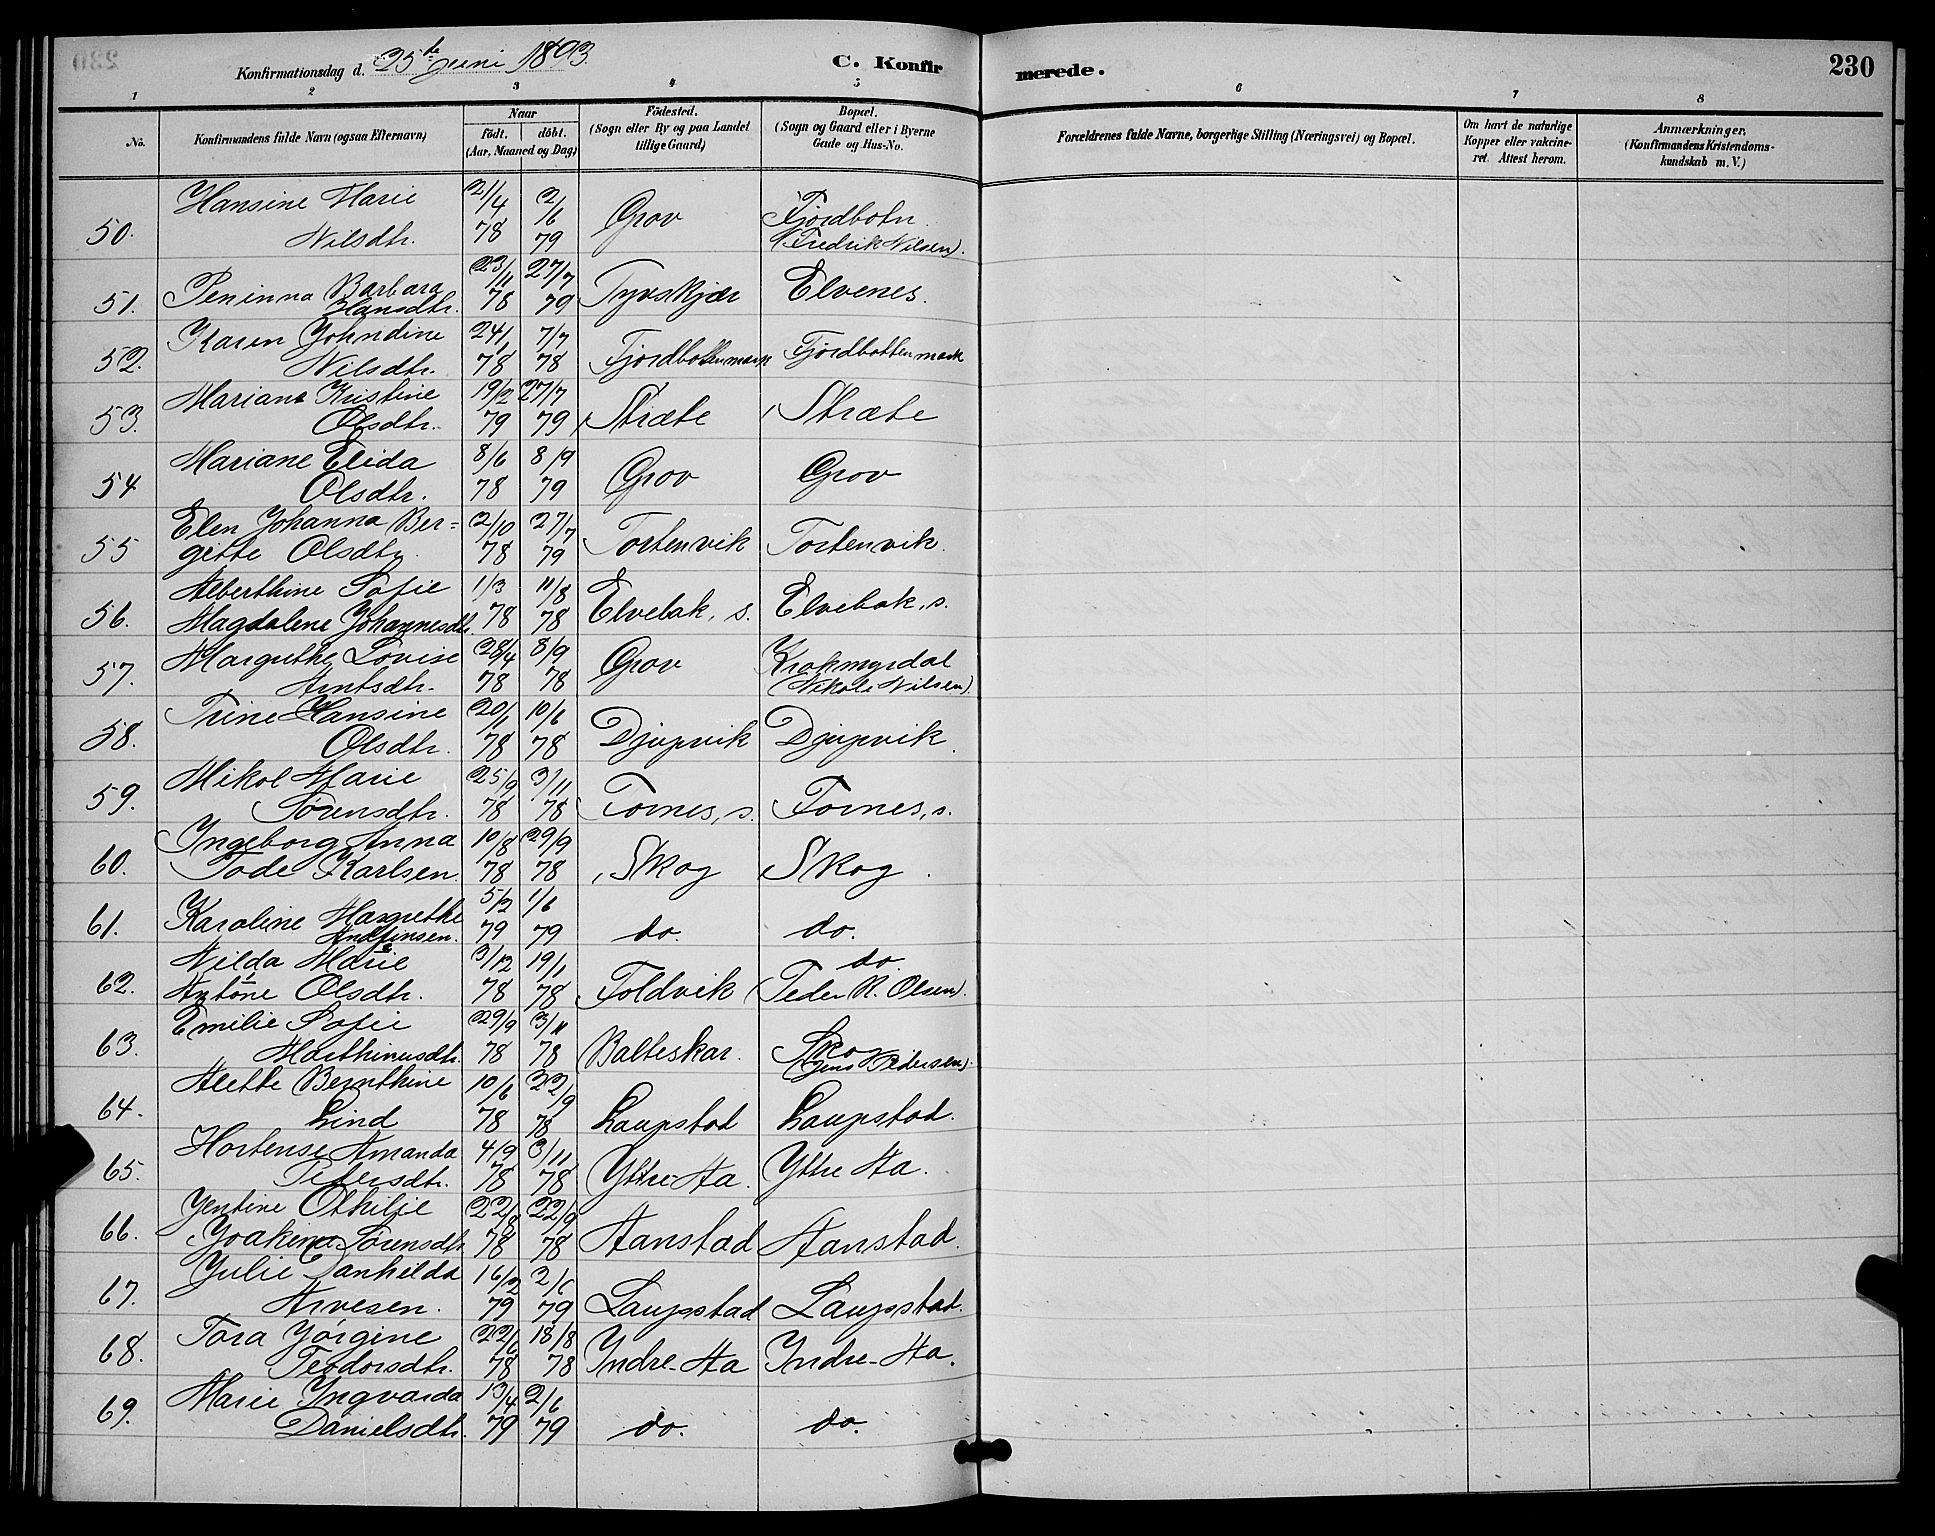 Konfirmationsdag d. 25de Juni 1893. C. Konfirmerede. 230
1 2 3 4 5 6 7 8
No. Konfirmandens fulde Navn (ogsaa Efternavn) Naar födt. döbt. (Aar, Maaned og Dag) Födested. (Sogn eller By og paa Landet tillige Gaard) Bopæl. (Sogn og Gaard eller i Byerne Gade og Hus-No. Forældrenes fulde Navne, borgerlige Stilling (Næringsvei) og Bopæl. Om havt de naturlige Kopper eller vakcineret. Attest herom. Anmærkninger. (Konfirmandens Kristendomskundskab m. V.)
Hansine Marie 21/4 2/6 Fjordbotn
50. Nilsdtr. 78 79 Grov (Fredrik Nilsen).
Peninna Barbara 23/11 27/7
51. Hansdtr. 78 79 Tyvskjær Elvenes.
Karen Johndine 24/1 7/7
52. Nilsdtr. 78 78 Fjordbottenmark Fjordbottenmark
Mariane Kristine 19/2 27/7
53. Olsdtr. 79 79 Stræte Stræte
Mariane Elida 8/6 8/9
54 Olsdtr. 78 79 Grov Grov
Elen Johanna Ber= 2/10 27/7
55 gitte Olsdtr. 78 79 Tortenvik Tortenvik.
Alberthine Sofie 1/3 11/8
56. Magdalene Johannesdtr. 78 78 Elvebak, s. Elvebak, s.
Margrethe Lovise 28/4 8/9 Krokmyrdal
57. Arntsdtr. 78 78 Grov (Nikolai Nilsen).
Trine Hansine 20/1 10/6
58. Olsdtr. 78 78 Djupvik Djupvik.
Mikol Marie 25/9 3/11
59. Sørensdtr. 78 78 Fornes, s. Fornes, s.
Ingeborg Anna 10/8 29/9
60. Tode Karlsen 78 78 Skog Skog.
Karoline Margrethe 5/2 1/6
61. Andfinsen. 79 79 do. do.
Nilda Marie 3/12 19/1 do.
62. Antone Olsdtr. 78 78 Foldvik (Peder N. Olsen).
Emilie Sofie 29/9 3/11 Skog
63. Marthinusdtr. 78 78 Balteskar. (Jens Pedersen).
Alette Bernthine 10/6 22/9
64. Lind 78 78 Laupstad Laupstad.
Hortense Amanda 4/9 3/11
65. Petersdtr. 78 78 Yttre-Aa. Yttre Aa.
Jentine Othilie 22/8 22/9
66. Joakima Sørensdtr. 78 78 Aanstad Aanstad.
Julie Danhilda 16/2 2/6
67. Arvesen. 79 79 Laupstad Laupstad.
Tora Jørgine 22/6 18/8
68. Teodorsdtr. 78 78 Indre-Aa Indre-Aa.
Marie Ingvarda 13/4 2/6
69. Danielsdtr. 79 79 do. do.